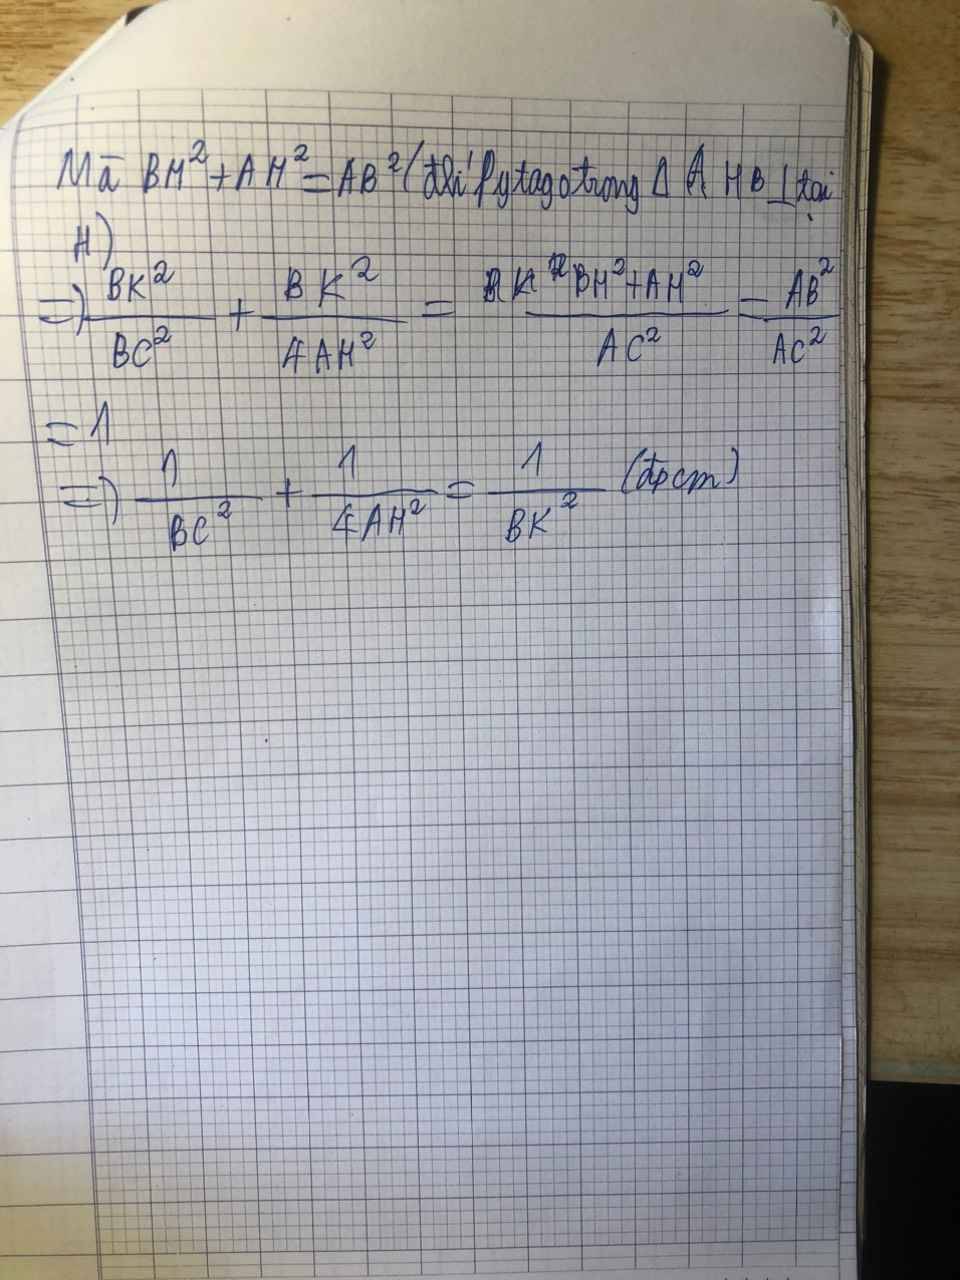 Mà BH² + AH² = AB² (đlí Pytago trong Δ AHB ⊥ tại
H)
=> BK²/BC² + BK²/4AH² = BH² + AH²/AC² = AB²/AC²
= 1
=> 1/BC² + 1/4AH² = 1/BK² (đpcm)